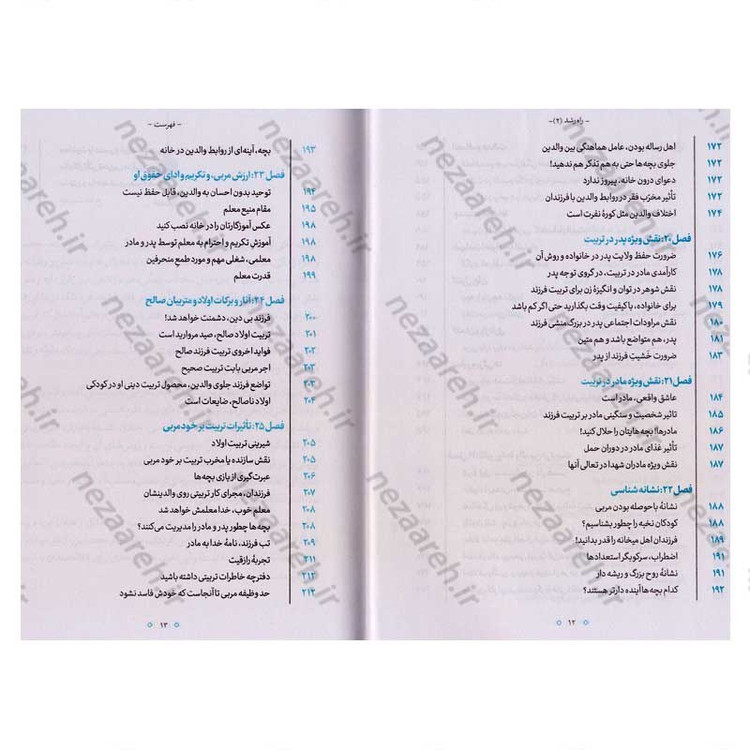 - راه رشد (۲) -
اهل رساله بودن، عامل هماهنگی بین والدین ۱۷۲
جلوی بچه‌ها حتی به هم تذکر هم ندهید! ۱۷۲
دعوای درون خانه، پیروز ندارد ۱۷۲
تأثیر مخرّب فقر در روابط والدین با فرزندان ۱۷۲
اختلاف والدین مثل کورهٔ نفرت است ۱۷۴
فصل ۲۰: نقش ویژه پدر در تربیت
ضرورت حفظ ولایت پدر در خانواده و روش آن ۱۷۶
کارآمدی مادر در تربیت، در گروی توجه پدر ۱۷۸
نقش شوهر در توان و انگیزهٔ زن برای تربیت فرزند ۱۷۸
برای خانواده، باکیفیت وقت بگذارید حتی اگر کم باشد ۱۷۹
نقش مراودات اجتماعی پدر در بزرگ منشی فرزند ۱۸۰
پدر، هم متواضع باشد و هم متین ۱۸۱
ضرورت خَشیتِ فرزند از پدر ۱۸۳
فصل ۲۱: نقش ویژه مادر در تربیت
عاشق واقعی، مادر است ۱۸۴
تاثیر شخصیت و سنگینی مادر بر تربیت فرزند ۱۸۵
مادرها! بچه‌هایتان را حلال کنید! ۱۸۶
تأثیر غذای مادر در دوران حمل ۱۸۷
نقش ویژه مادران شهدا در تعالی آنها ۱۸۷
فصل ۲۲: نشانه شناسی
نشانهٔ باحوصله بودن مربی ۱۸۸
کودکان نخبه را چطور بشناسیم؟ ۱۸۸
فرزندان اهل میخانه را قدر بدانید! ۱۸۹
اضطراب، سرکوبگر استعدادها ۱۹۱
نشانهٔ روح بزرگ و ریشه دار ۱۹۱
کدام بچه‌ها آینده دارتر هستند؟ ۱۹۲
۱۲
- فهرست -
بچه، آینه‌ای از روابط والدین در خانه ۱۹۳
فصل ۲۳: ارزش مربی، و تکریم و ادای حقوق او
توحید بدون احسان به والدین، قابل حفظ نیست ۱۹۴
مقام منیع معلم ۱۹۵
عکس آموزگارتان را در خانه نصب کنید ۱۹۸
آموزشِ تکریم و احترام به معلم توسط پدر و مادر ۱۹۸
معلمی، شغلی مهم و مورد طمعِ منحرفین ۱۹۸
قدرت معلم ۱۹۹
فصل ۲۴: آثار و برکات اولاد و متربیان صالح
فرزند بی دین، دشمنت خواهد شد! ۲۰۰
تربیت اولاد صالح، صید مروارید است ۲۰۱
فواید اخروی تربیت فرزند صالح ۲۰۲
اجر مربی بابت تربیت صحیح ۲۰۳
تواضع فرزند جلوی والدین، محصول تربیت دینی او در کودکی ۲۰۳
اولاد ناصالح، ضایعات است ۲۰۴
فصل ۲۵: تأثیرات تربیت بر خود مربی
شیرینی تربیت اولاد ۲۰۵
نقش سازنده یا مخرب تربیت بر خود مربی ۲۰۵
عبرت‌گیری از بازی بچه‌ها ۲۰۶
فرزندان، مجرای کار تربیتی روی والدینشان ۲۰۷
معلم خوب، خدا معلمش خواهد شد ۲۰۸
بچه‌ها چطور پدر و مادر را مدیریت می‌کنند؟ ۲۰۸
تب فرزند، نامهٔ خدا به مادر ۲۰۹
تجربهٔ رازقیت ۲۱۱
دفترچه خاطرات تربیتی داشته باشید ۲۱۲
حد وظیفه مربی تا آنجاست که خودش فاسد نشود ۲۱۲
۱۳
nezaareh.ir